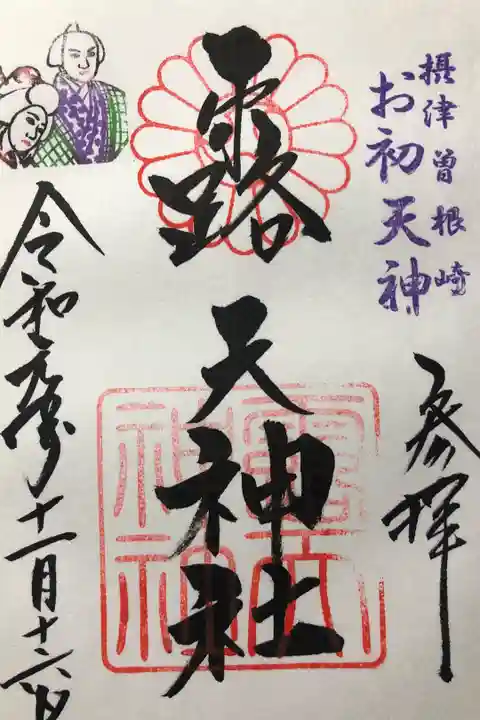 摂津曽根崎
お初天神
参拝
露天神社
露天
神社
令和元年十一月十六日